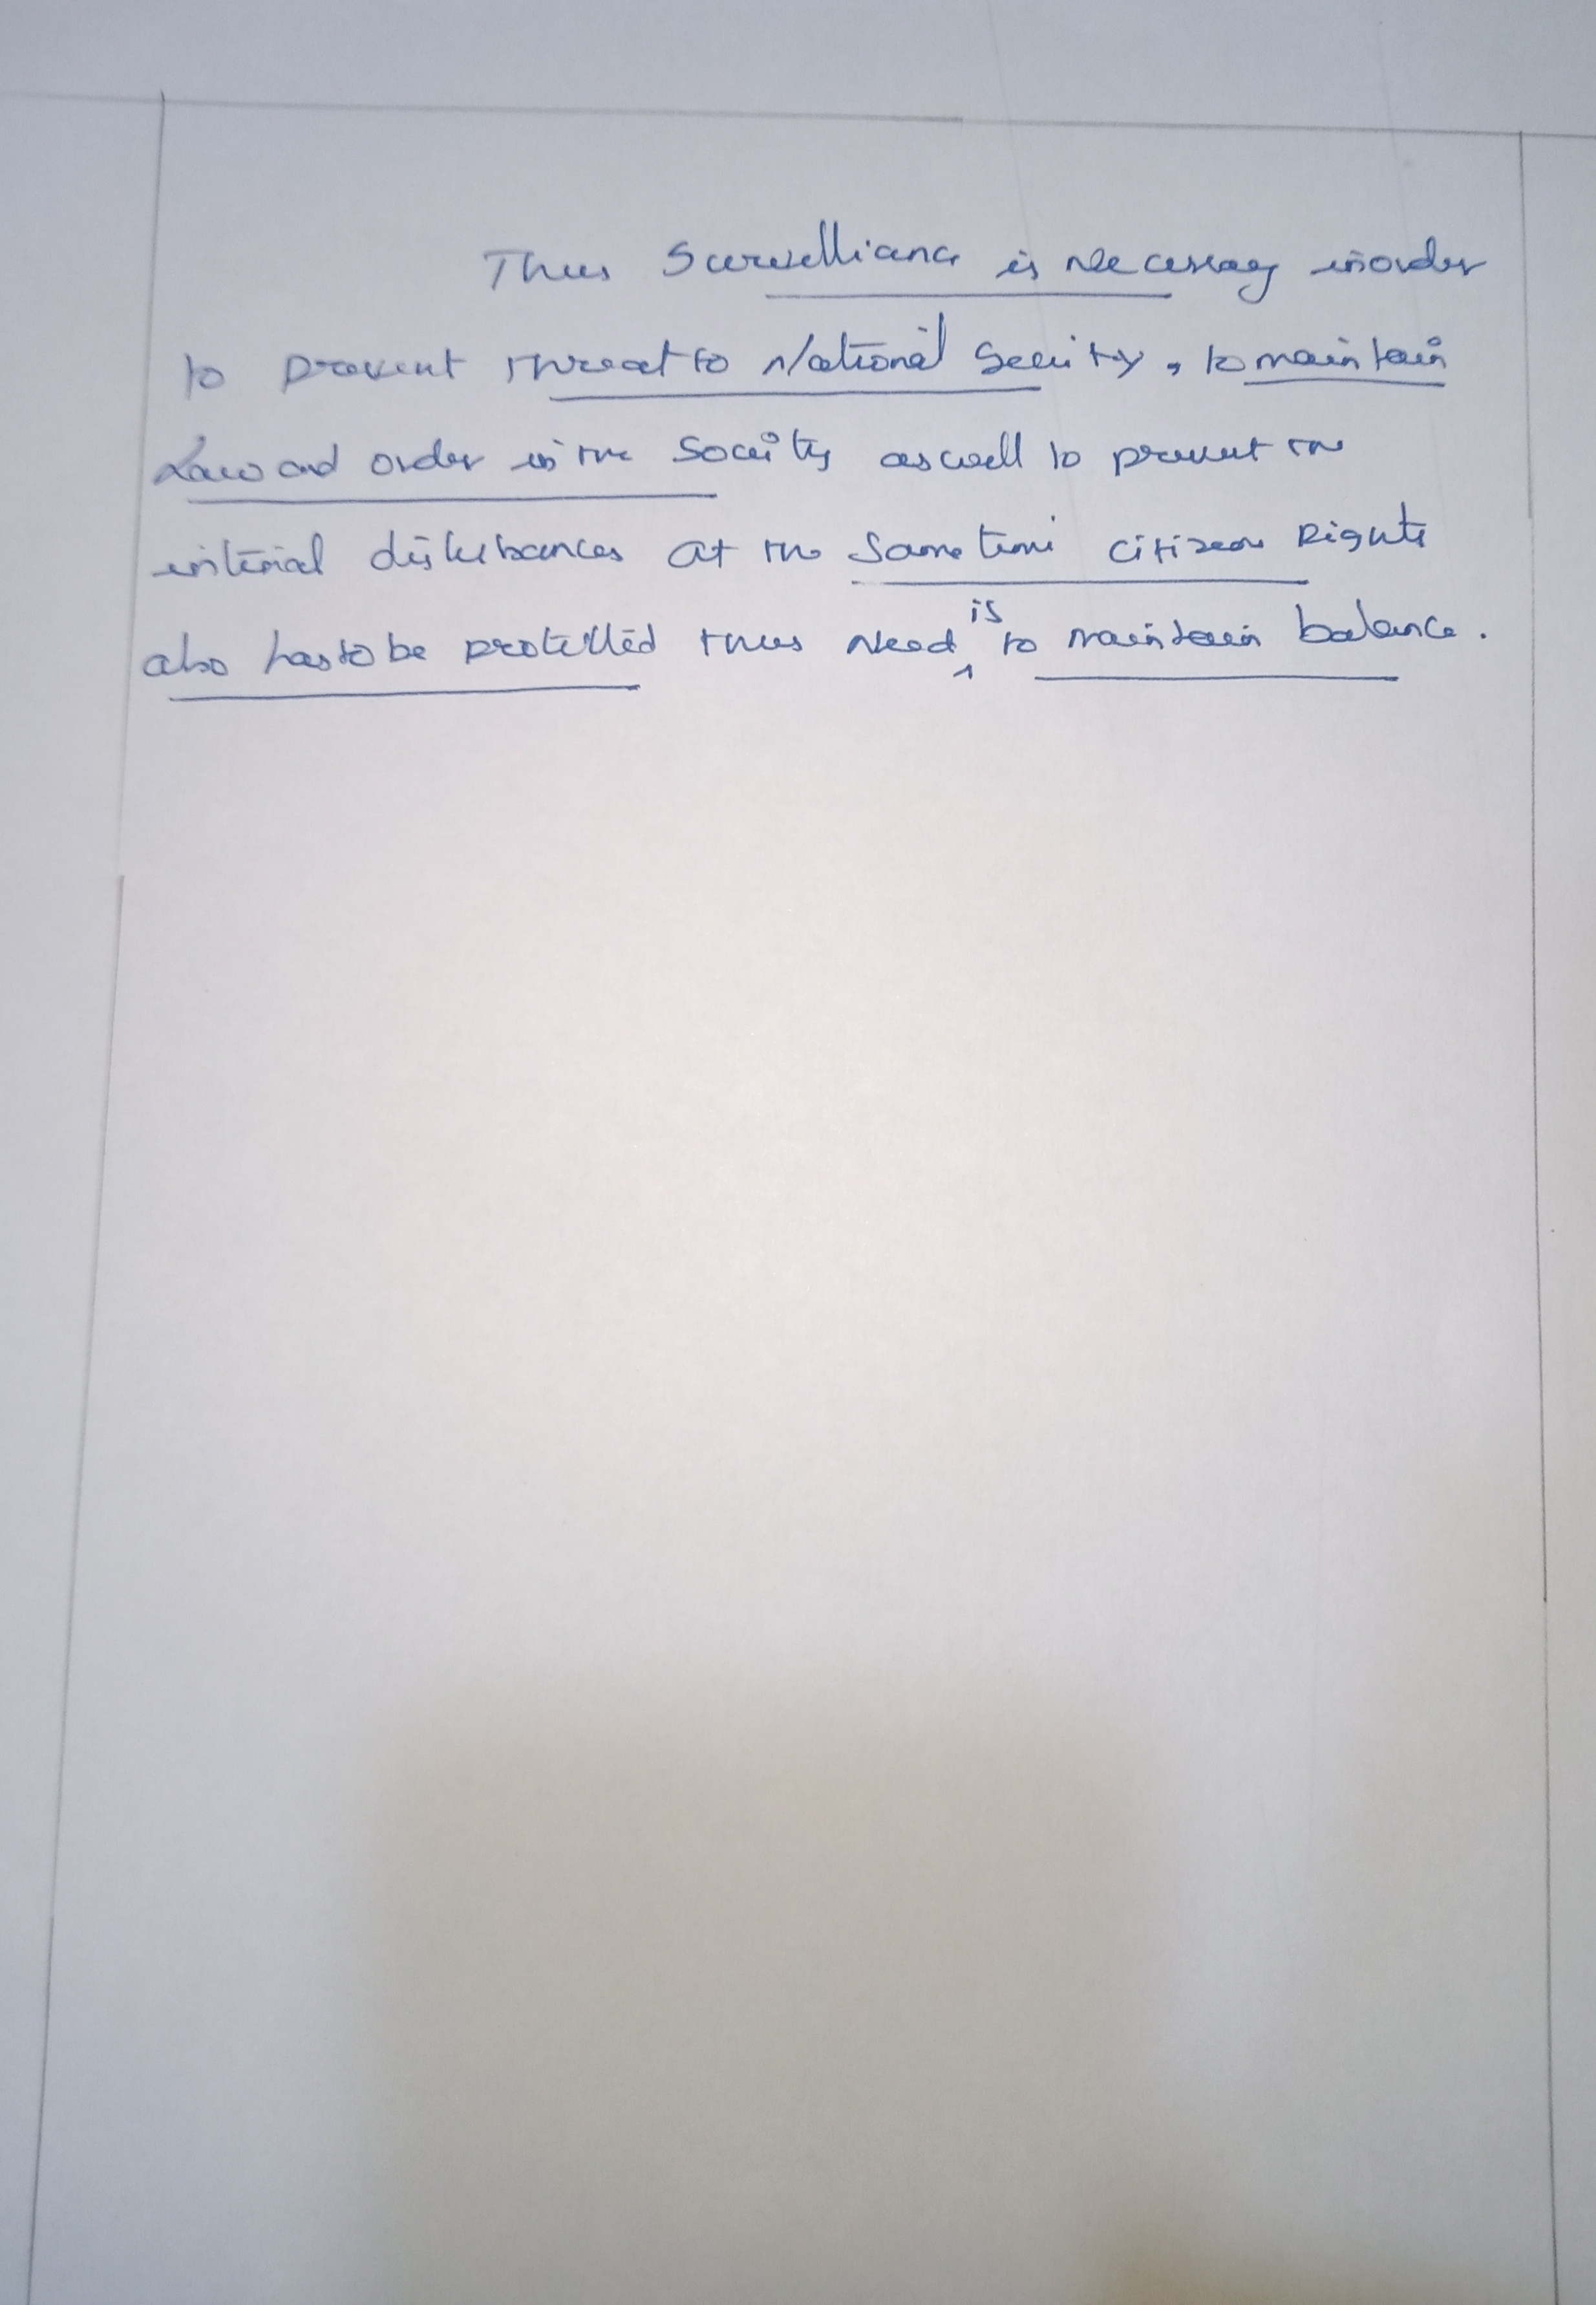 Thus Survelliance is necessary inorder
to prevent threat to National Security, to maintain
Law and order in the Society aswell to prevent the
internal disturbances at the same time citizens Rights
also has to be protected thus need is to maintain balance.